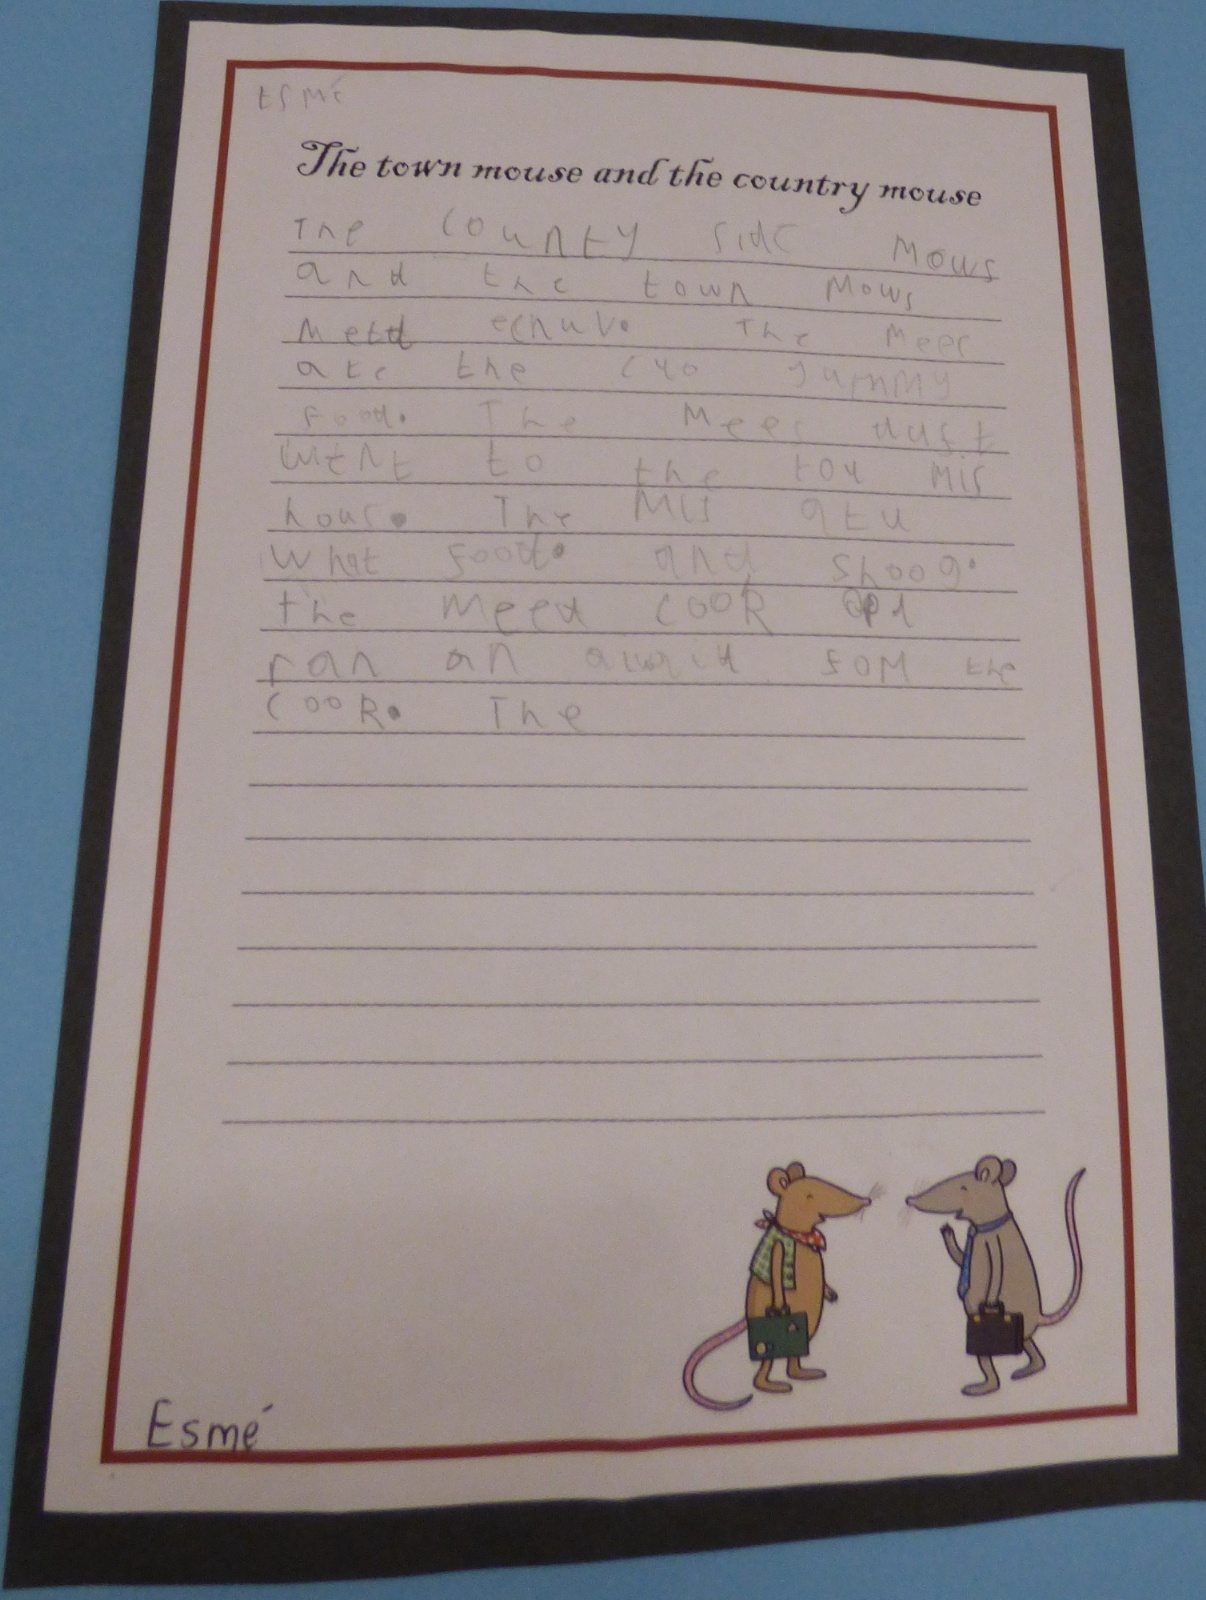 Esmé
The town mouse and the country mouse
The county side mows
and the town mows
The Mees
ate the yummy
food. The Mees
went to the tou mis
hous. The Mis atu
What food. and shoog.
the meed cook
ran an fom the
cook. The
Esmé